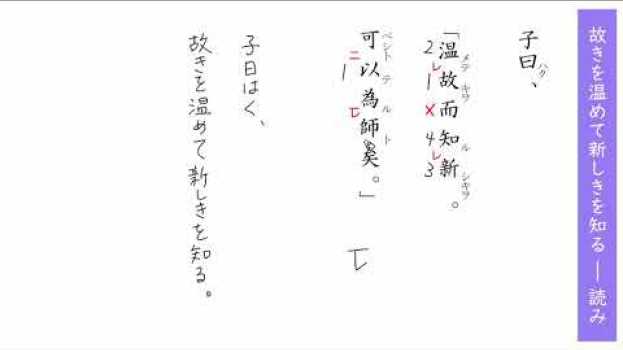 故きを温めて新しきを知る ― 読み
子曰、
ハク
「温故而知新。
メテ キヲ ル シキヲ
2 レ 1 × 4 レ 3
可以為師矣。」
ベシト テ ル ト
二 1
子曰はく、
故きを温めて新しきを知る。